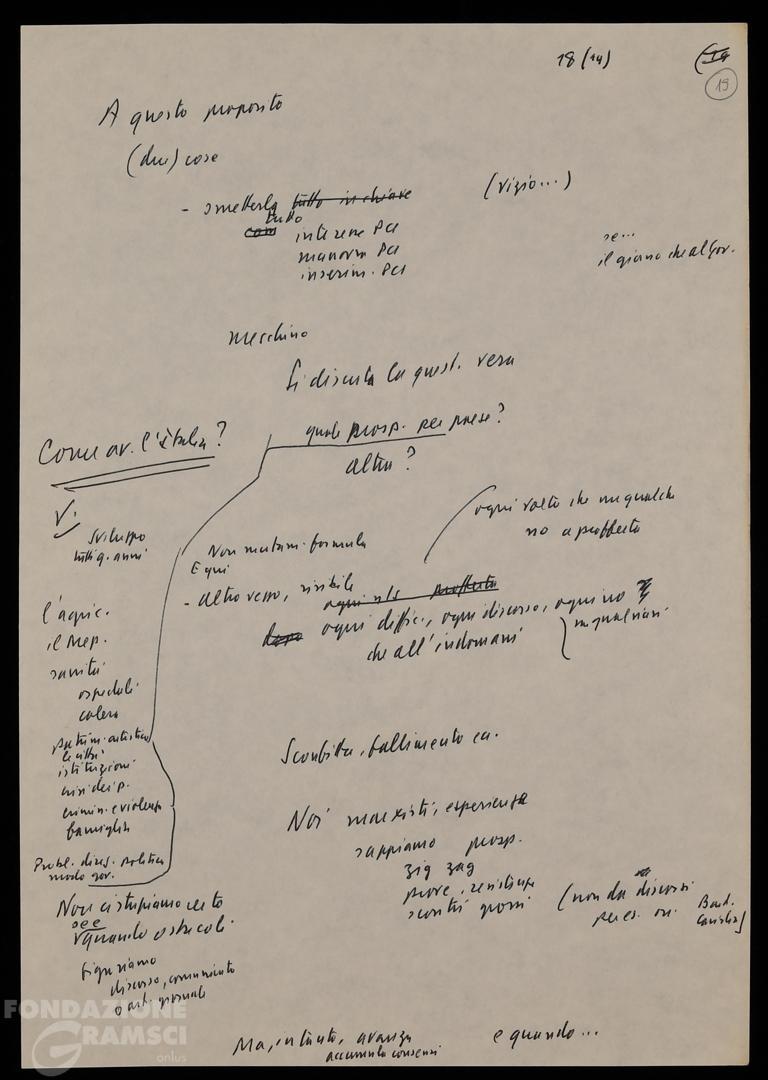 18 (14)
19
A questo proposito
(due) cose
- smetterla tutto in chiave
(vizio...)
tutto
interene PCI
manovra PCI
inserim. PCI
se...
il giorno che al Gov.
meschino
Si discuta la quest. vera
quale prosp. per paese?
altra?
Come av. l'Italia?
V.
Sviluppo
tutti q. anni
l'agric.
il Mep.
sanità
ospedali
colera
patrim. artistico
le città
istituzioni
crisi dei p.
crimin. e violenza
famiglia
Probl. direz. politica
modo gov.
ogni volta che un qualche
no a profferta
Non mutam. formula
E qui
- Altro vezzo, risibile
ogni diffic., ogni discorso, ogni no
un qualsiasi
che all'indomani
Sconfitta, fallimento ecc.
Noi marxisti, esperienza
sappiamo prosp.
zig zag
prove, resistenze
scontri grossi
(non da discorsi
per es. on.
Non ci stupiamo certo
se e
quando ostacoli.
Figuriamo
discorso, comunicato
o art. giornale
Ma, intanto, avanza
accumula consensi
e quando...
FONDAZIONE
GRAMSCI
onlus